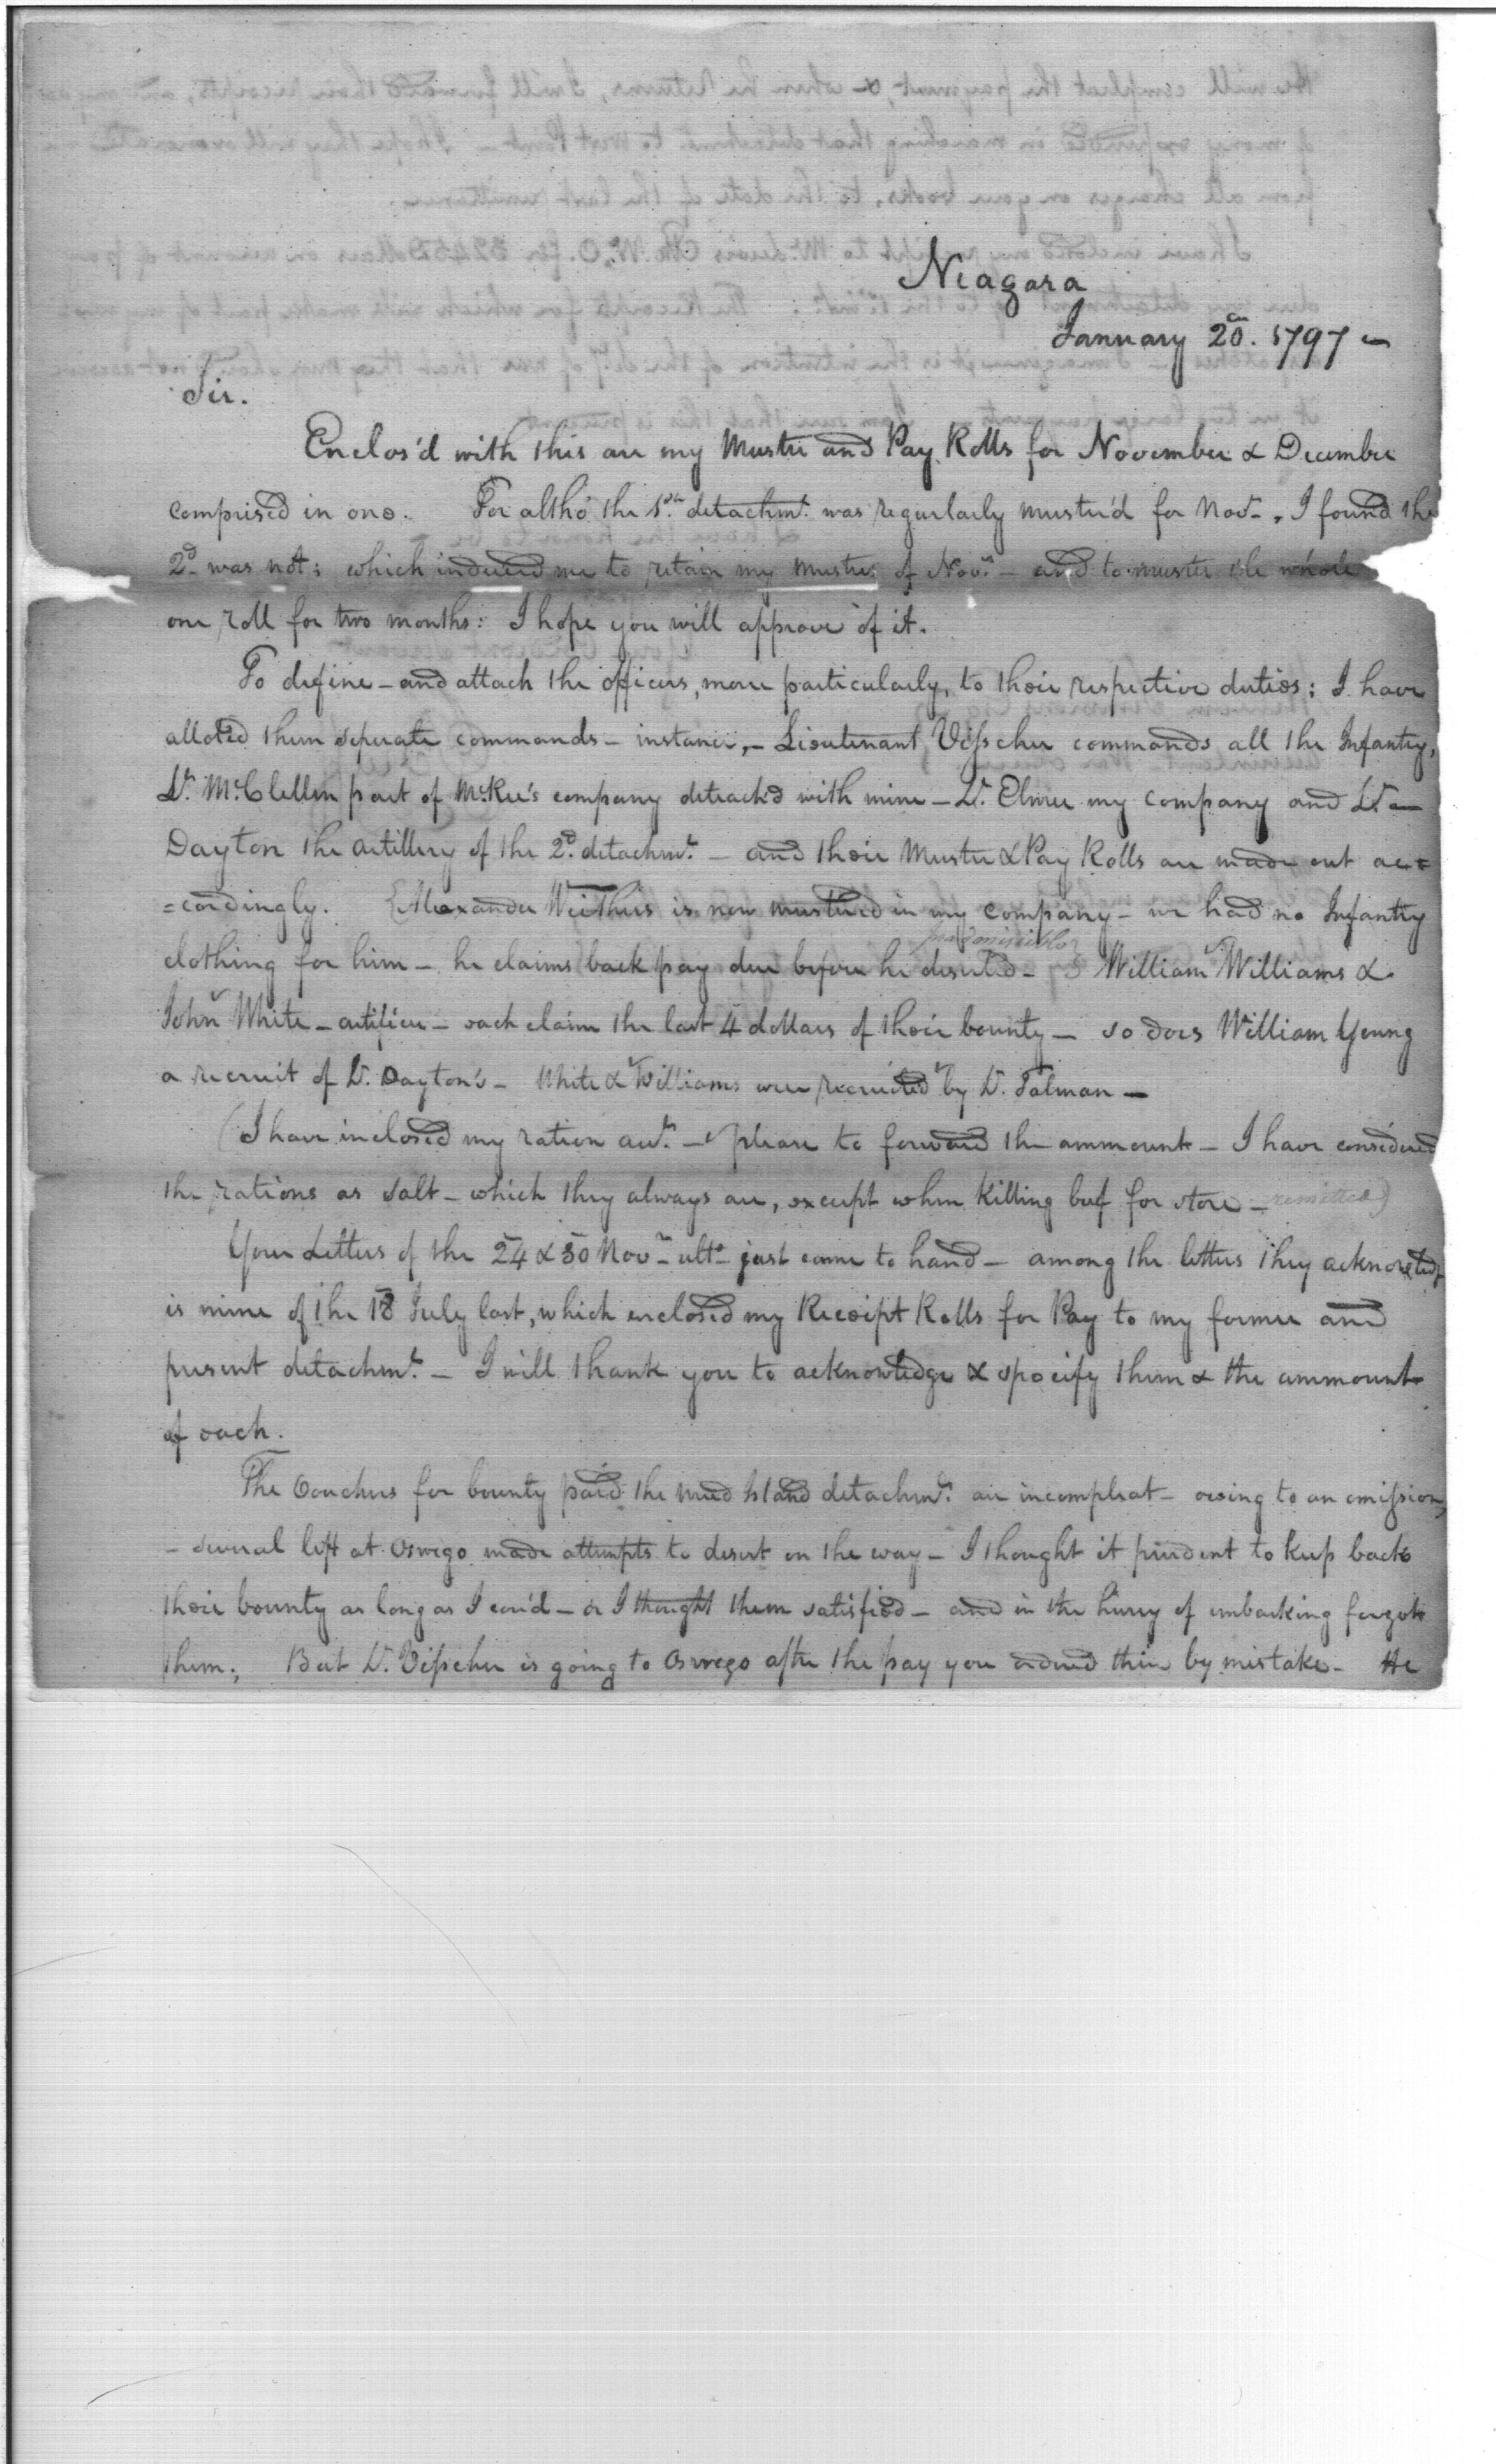 Niagara
January 20th. 1797
Sir.
Enclos'd with this are my Muster and Pay Rolls for November & December
comprised in one. For altho' the 1st. detachmt. was regularly muster'd for Novr. I found the
2d. was not: which induced me to retain my muster of Novr. – and to muster the whole
one roll for two months: I hope you will approve of it.
To define – and attach the officers, more particularly, to their respective duties: I have
alloted them seperate commands – instance, – Lieutenant Visscher commands all the Infantry,
Lt. McClellen part of McKee's company detach'd with mine – Lt. Elmer my company and Lt.
Dayton the artillery of the 2d. detachmt. – and their Muster & Pay Rolls are made out ac=
=cordingly. Alexander is now mustered in my company – we had no Infantry
clothing for him – he claims back pay due before he deserted – William Williams &
John White – artificer – each claim the last 4 dollars of their bounty – so does William Young
a recruit of Lt. Dayton's – White & Williams were recruited by Lt. Talman –
(I have inclosed my ration acct. – please to forward the ammount – I have considered
the rations as salt – which they always are, except when killing beef for store – remitted)
Your Letters of the 24 & 30 Novr. ulto. just came to hand – among the letters they acknowledge
is mine of the 18 July last, which enclosed my Receipt Rolls for Pay to my former and
present detachmt. – I will thank you to acknowledge & specify them & the ammount
of each.
The Vouchers for bounty paid the mud Island detachmt. are incompleat – owing to an omission,
– several left at Oswego made attempts to desert on the way – I thought it prudent to keep back
their bounty as long as I cou'd – or I thought them satisfied – and in the hurry of embarking forgot
them; But Lt. Visscher is going to Oswego after the pay you ordered thier by mistake – He